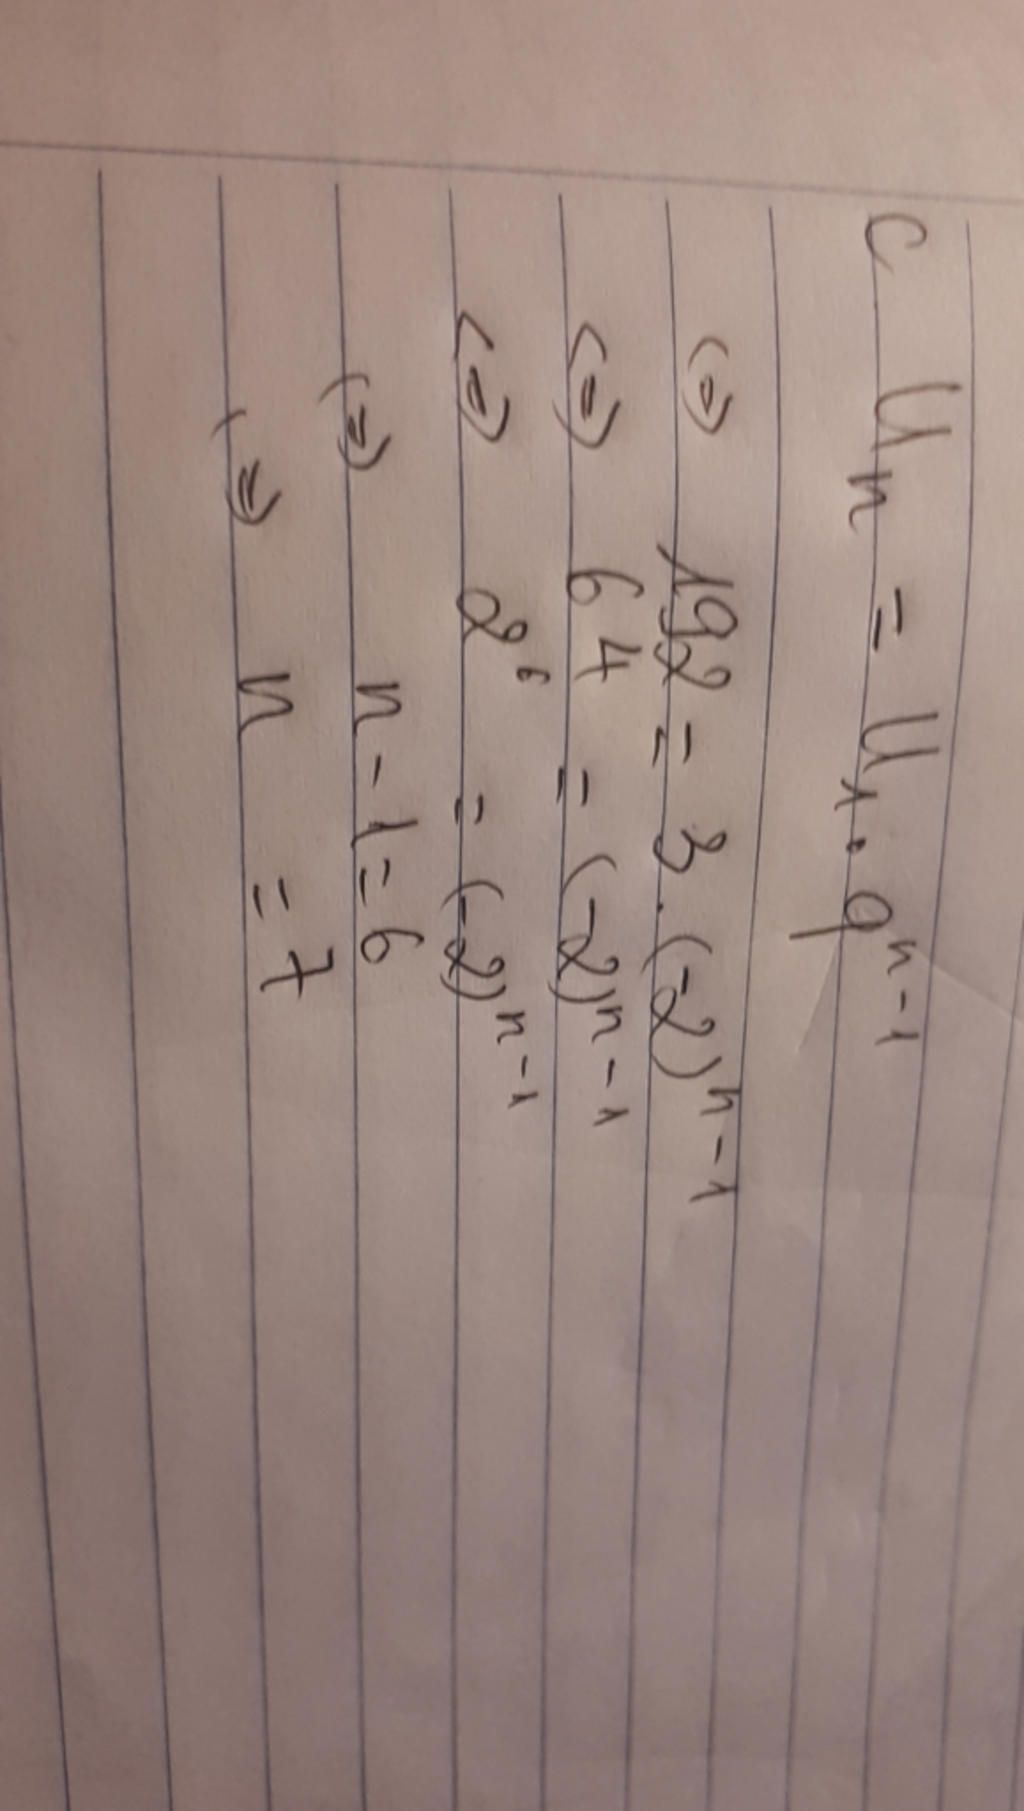 C U_n = U_1 . q^{n-1}
<=> 192 = 3 . (-2)^{n-1}
<=> 64 = (-2)^{n-1}
<=> 2^6 = (-2)^{n-1}
<=> n - 1 = 6
<=> n = 7